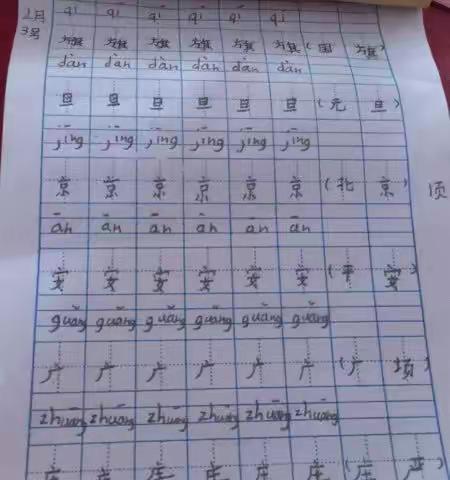 1月 qí qí qí qí qí
3号
旗 旗 旗 旗 旗 旗 (国 旗)
dàn dàn dàn dàn dàn dàn
旦 旦 旦 旦 旦 旦 (元 旦)
jīng jīng jīng jīng jīng jīng
京 京 京 京 京 京 (北 京) 顷
ān ān ān ān ān ān
安 安 安 安 安 安 (平 安)
guǎng guǎng guǎng guǎng guǎng guǎng
广 广 广 广 广 广 (广 场)
zhuāng zhuāng zhuāng zhuāng zhuāng zhuāng
庄 庄 庄 庄 庄 庄 (庄 严)